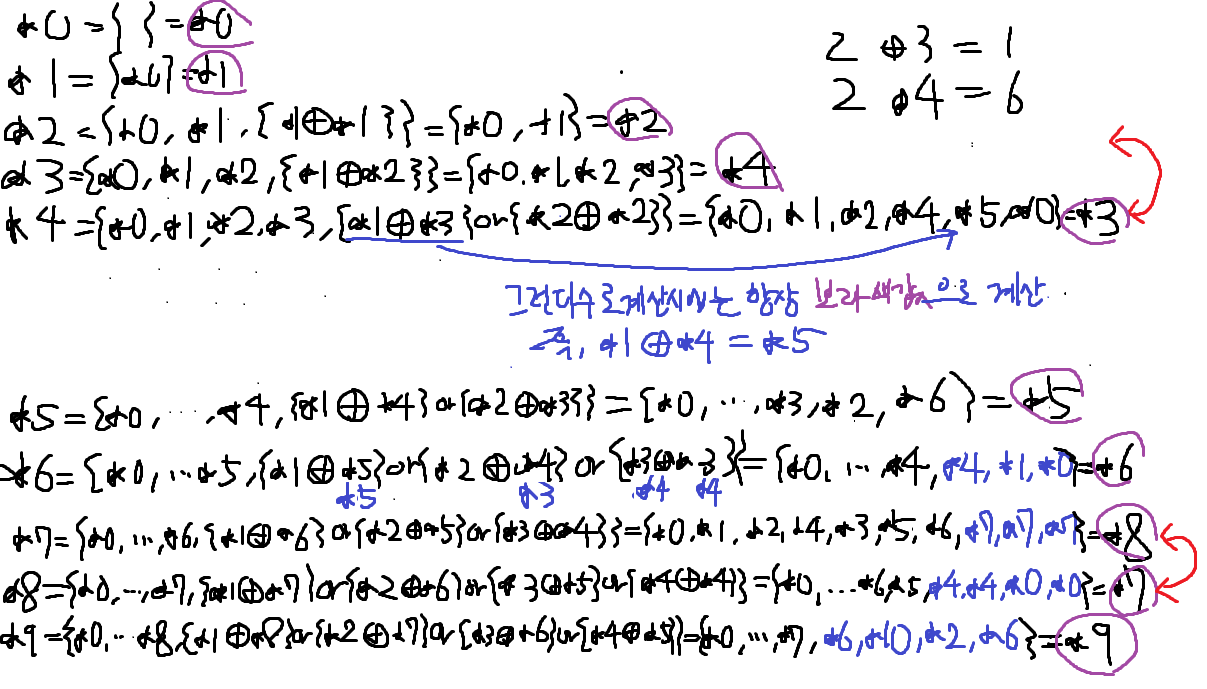 *0 = { } = *0
*1 = {*0} = *1
*2 = {*0, *1, {*1⊕*1}} = {*0, *1} = *2
*3 = {*0, *1, *2, {*1⊕*2}} = {*0, *1, *2, *3} = *4
*4 = {*0, *1, *2, *3, {*1⊕*3} or {*2⊕*2}} = {*0, *1, *2, *4, *5, *0} = *3
2 ⊕ 3 = 1
2 ⊕ 4 = 6
그런디수로 계산시에는 항상 보라색값으로 계산
즉, *1⊕*4 = *5
*5 = {*0, ..., *4, {*1⊕*4} or {*2⊕*3}} = {*0, ..., *3, *2, *6} = *5
*6 = {*0, ... *5, {*1⊕*5} or {*2⊕*4} or {*3⊕*3}} = {*0, ... *4, *4, *1, *0} = *6
*5 *3 *4 *4
*7 = {*0, ..., *6, {*1⊕*6} or {*2⊕*5} or {*3⊕*4}} = {*0, *1, *2, *4, *3, *5, *6, *7, *7, *7} = *8
*8 = {*0, ..., *7, {*1⊕*7} or {*2⊕*6} or {*3⊕*5} or {*4⊕*4}} = {*0, ... *6, *5, *4, *4, *0, *0} = *7
*9 = {*0, ... *8, {*1⊕*8} or {*2⊕*7} or {*3⊕*6} or {*4⊕*5}} = {*0, ..., *7, *6, *10, *2, *6} = *9